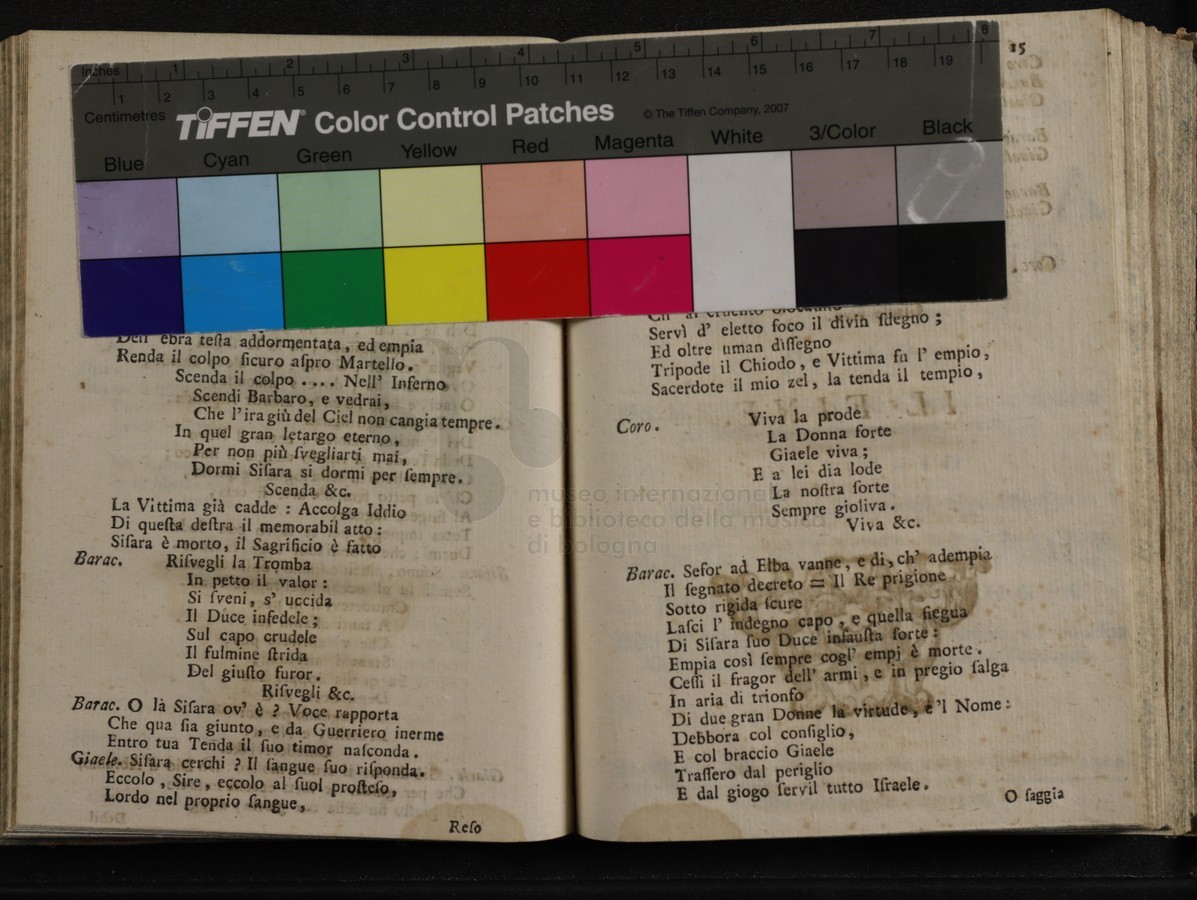 Inches 1 2 3 4 5 6 7 8
Centimetres 1 2 3 4 5 6 7 8 9 10 11 12 13 14 15 16 17 18 19
TIFFEN® Color Control Patches © The Tiffen Company, 2007
Blue Cyan Green Yellow Red Magenta White 3/Color Black
Dell' ebra teſta addormentata, ed empia
Renda il colpo ſicuro aſpro Martello.
Scenda il colpo .... Nell' Inferno
Scendi Barbaro, e vedrai,
Che l'ira giù del Ciel non cangia tempre.
In quel gran letargo eterno,
Per non più ſvegliarti mai,
Dormi Siſara si dormi per ſempre.
Scenda &c.
La Vittima già cadde : Accolga Iddio
Di queſta deſtra il memorabil atto :
Siſara è morto, il Sagrificio è fatto
Barac. Riſvegli la Tromba
In petto il valor :
Si ſveni, s' uccida
Il Duce infedele ;
Sul capo crudele
Il fulmine ſtrida
Del giuſto furor.
Riſvegli &c.
Barac. O là Siſara ov' è ? Voce rapporta
Che qua ſia giunto, e da Guerriero inerme
Entro tua Tenda il ſuo timor naſconda.
Giaele. Siſara cerchi ? Il ſangue ſuo riſponda.
Eccolo, Sire, eccolo al ſuol proſteſo,
Lordo nel proprio ſangue,
Reſo
15
Servì d' eletto foco il divin ſdegno ;
Ed oltre uman diſſegno
Tripode il Chiodo, e Vittima fu l' empio,
Sacerdote il mio zel, la tenda il tempio,
Coro. Viva la prode
La Donna forte
Giaele viva ;
E a lei dia lode
La noſtra ſorte
Sempre gioliva.
Viva &c.
Barac. Sefor ad Elba vanne, e di, ch' adempia
Il ſegnato decreto = Il Re prigione
Sotto rigida ſcure
Laſci l' indegno capo, e quella ſiegua
Di Siſara ſuo Duce infauſta ſorte :
Empia così ſempre cogl' empj è morte.
Ceſſi il fragor dell' armi, e in pregio ſalga
In aria di trionfo
Di due gran Donne la virtude, e'l Nome :
Debbora col conſiglio,
E col braccio Giaele
Traſſero dal periglio
E dal giogo ſervil tutto Iſraele.
O ſaggia
museo internazionale
e biblioteca della musica
di bologna